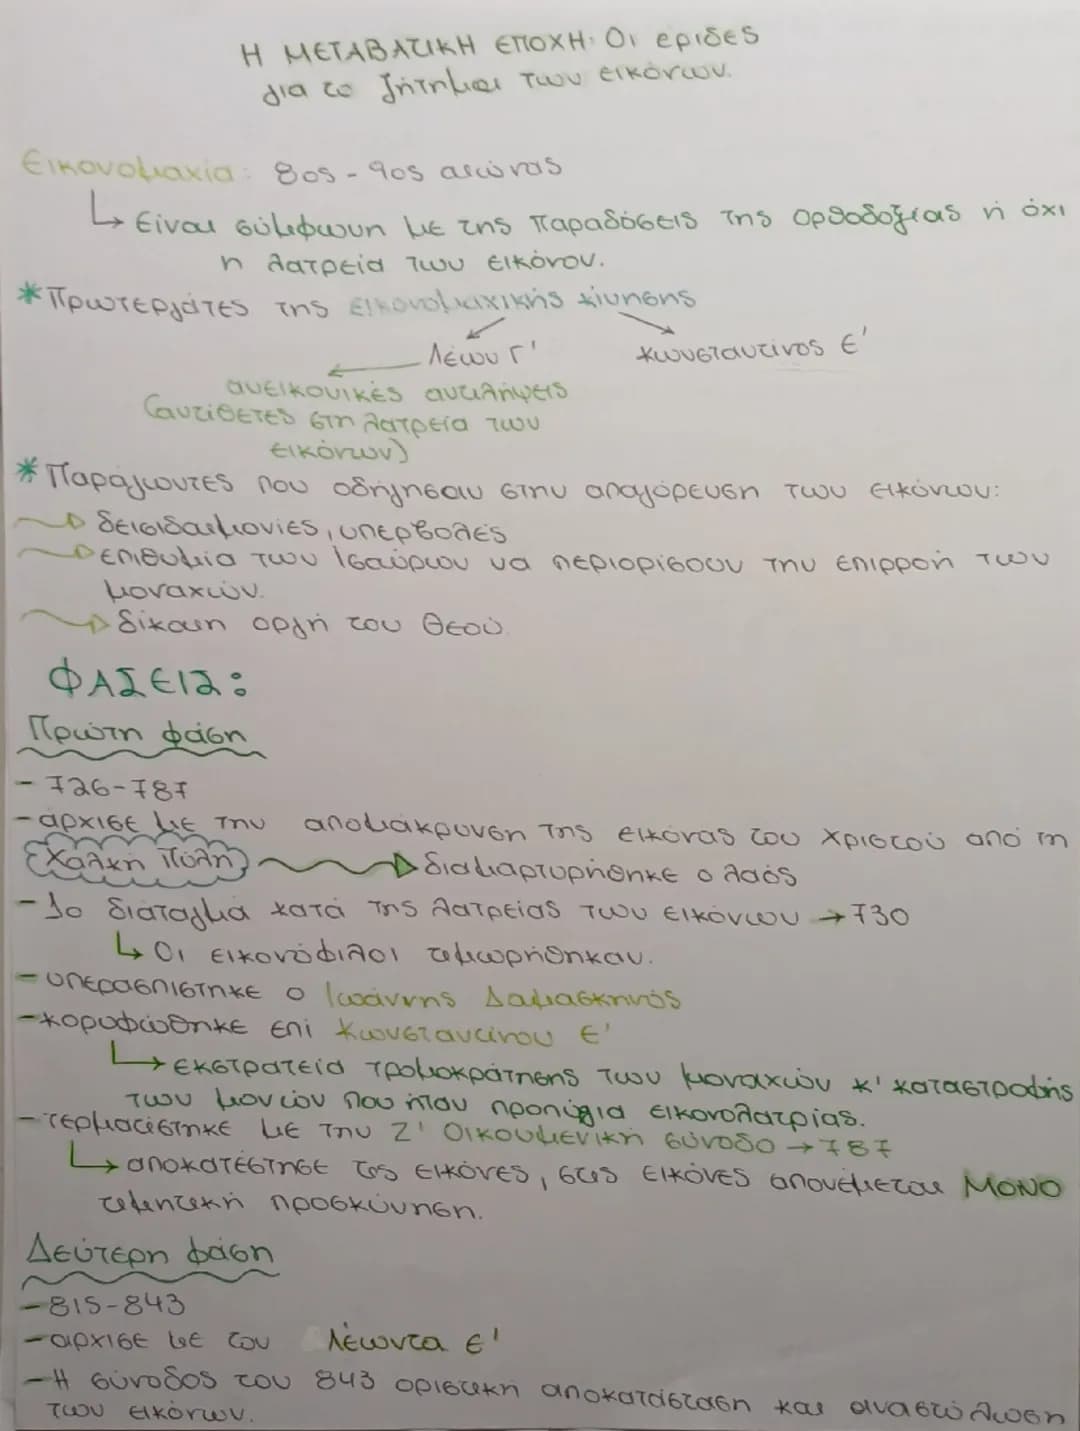 Η ΜΕΤΑΒΑΤΙΚΗ ΕΠΟΧΗ: Οι εριδες
για το ζήτημα των εικόνων.
Εικονομαχία: 8ος - 9ος αιώνας
↳ Είναι σύμφωνη με της παραδόσεις της ορθοδοξίας ή όχι
η λατρεία των εικόνον.
*Πρωτεργάτες της εικονομαχικής κίνησης
Λέων Γ' Κωνσταντίνος Ε'
ανεικονικές αντιλήψεις
(αντίθετες στη λατρεία των
εικόνων)
*Παράγωντες που οδήγησαν στην απαγόρευση των εικόνων:
δεισιδαιμονίες, υπερβολές
επιθυμία των Ισαύρων να περιορίσουν την επιρροή των
μοναχών.
δίκαιη οργή του Θεού
ΦΑΣΕΙΣ:
Πρώτη φάση
- 726-787
- άρχισε με την απομάκρυνση της εικόνας του Χριστού από τη
Χαλκή Πύλη → διαμαρτυρήθηκε ο λαός
- 1ο διάταγμα κατά της λατρείας των εικόνων → 730
↳ Οι εικονόφιλοι τιμωρήθηκαν.
- υπερασπίστηκε ο Ιωάννης Δαμασκηνός
- κορυφώθηκε επί Κωνσταντίνου Ε'
↳ εκστρατεία τρομοκράτησης των μοναχών κ' καταστροφής
των μονών που ήταν προπύγια εικονολατρίας.
- τερματίστηκε με την Ζ' Οικουμενική σύνοδο → 787
↳ αποκατέστησε τις εικόνες, στις εικόνες απονέμεται ΜΟΝΟ
τιμητική προσκύνηση.
Δεύτερη φάση
- 815-843
- άρχισε με τον Λέωντα Ε'
- Η σύνοδος του 843 οριστική αποκατάσταση και αναστύλωση
των εικόνων.